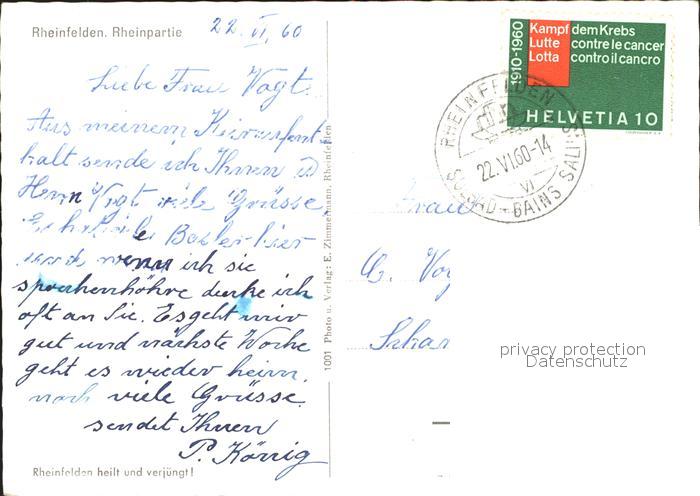 Rheinfelden. Rheinpartie
22. VI. 60
Liebe Frau Vogt
Aus meinem Kuraufent-
halt sende ich Ihnen u
Herrn Vogt viele Grüsse
viele Basler hier
und wenn ich sie
sprechen höhre denke ich
oft an Sie. Es geht mir
gut und nächste Woche
geht es wieder heim.
noch viele Grüsse
sendet Ihnen
P. König
Rheinfelden heilt und verjüngt!
1001 Photo u. Verlag: E. Zimmermann, Rheinfelden
1910-1960
Kampf dem Krebs
Lutte contre le cancer
Lotta contro il cancro
HELVETIA 10
RHEINFELDEN
22.VI.60-14
VI
SOLBAD - BAINS SALINS
Frau
Vog
privacy protection
Datenschutz